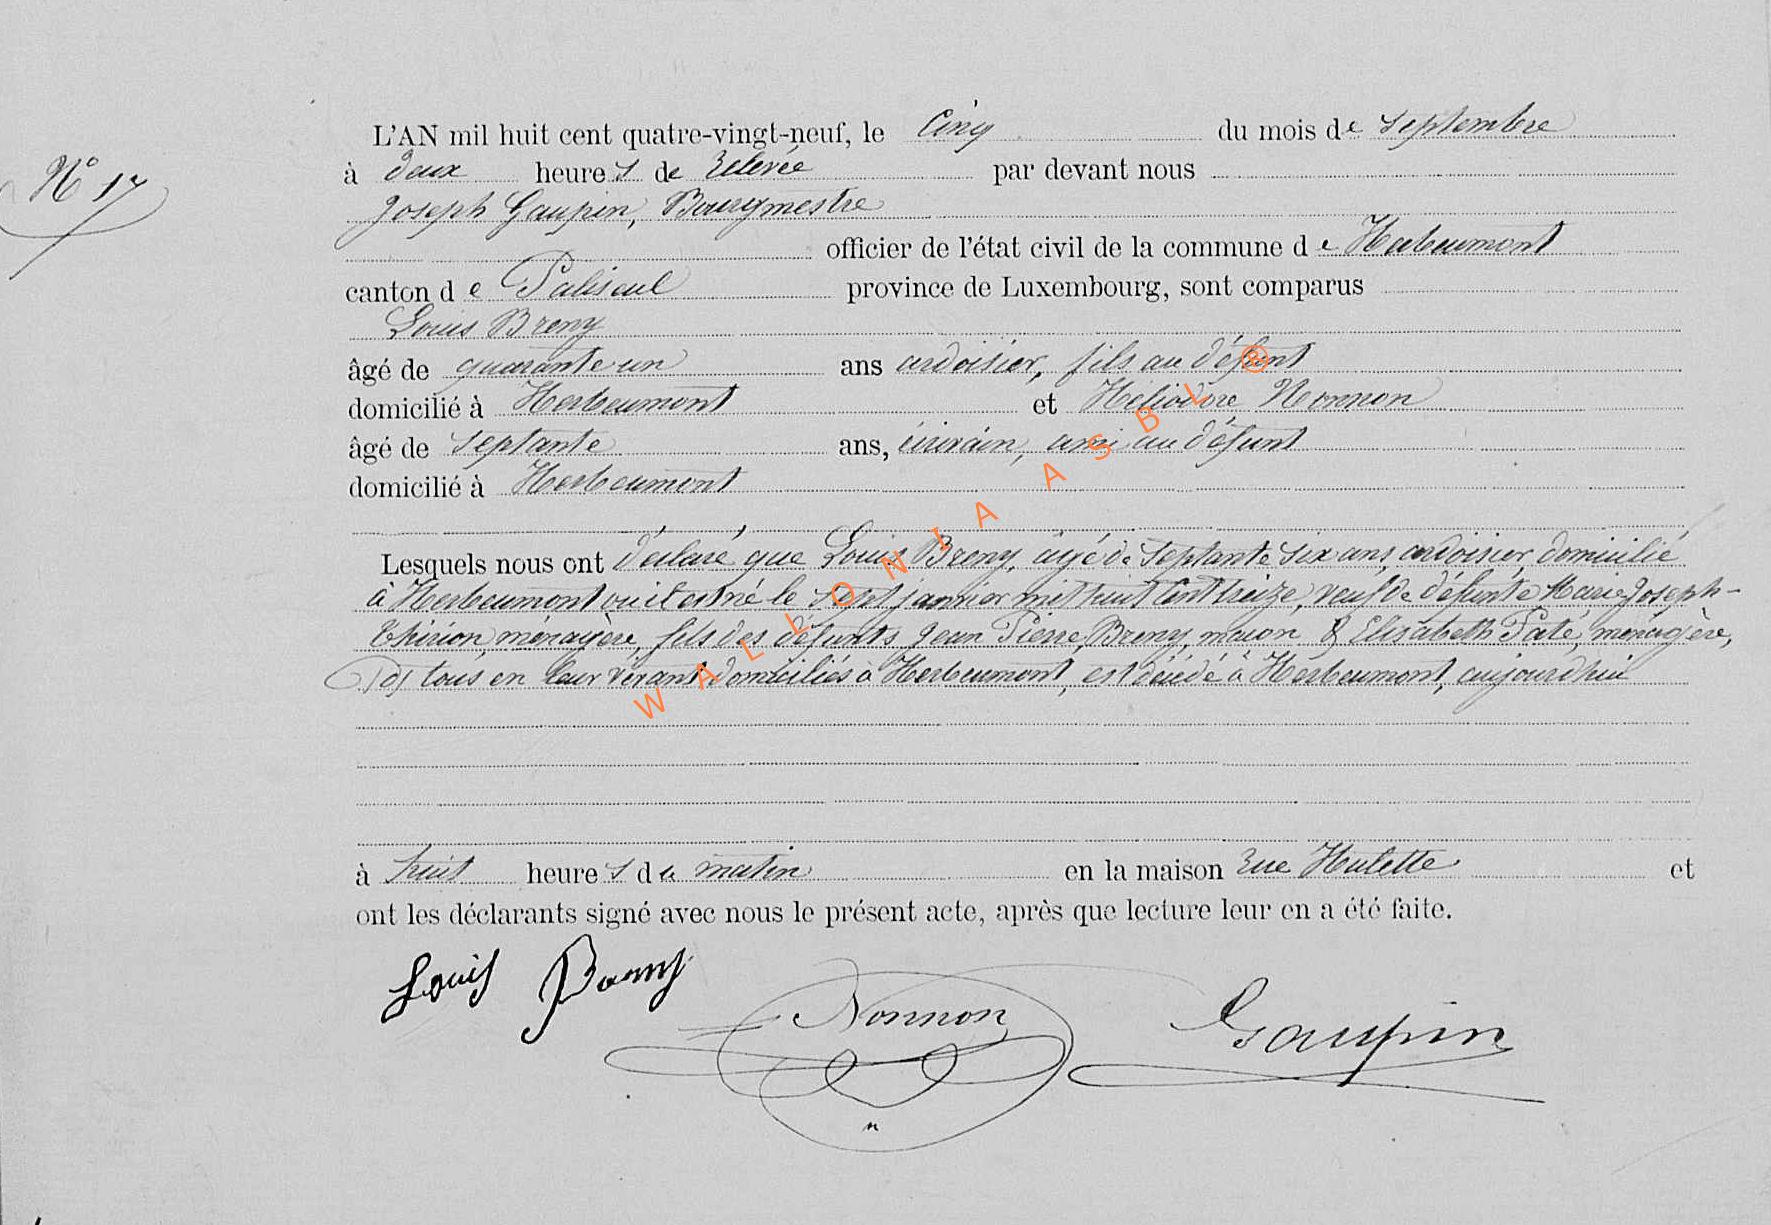 N° 17
L'AN mil huit cent quatre-vingt-neuf, le Cinq du mois de Septembre
à deux heures de Relevée par devant nous
Joseph Gaupin, Bourgmestre
officier de l'état civil de la commune de Herbeumont
canton de Paliseul province de Luxembourg, sont comparus
Louis Breny
âgé de quarante un ans ardoisier, fils au défunt
domicilié à Herbeumont et Héliodore Nonnon
âgé de septante ans, écrivain, ami au défunt
domicilié à Herbeumont
Lesquels nous ont déclaré que Louis Breny, âgé de septante six ans, ardoisier, domicilié
à Herbeumont où il est né le sept janvier mil huit cent treize, veuf de défunte Marie Joseph-
Thirion, ménagère, fils des défunts Jean Pierre Breny, maçon & Elisabeth Paté, ménagère,
tous en leur vivant domiciliés à Herbeumont, est décédé à Herbeumont, aujourd'hui
à huit heures du matin en la maison rue Hulette et
ont les déclarants signé avec nous le présent acte, après que lecture leur en a été faite.
Louis Breny Nonnon Gaupin
WALLONIA ASBL ®